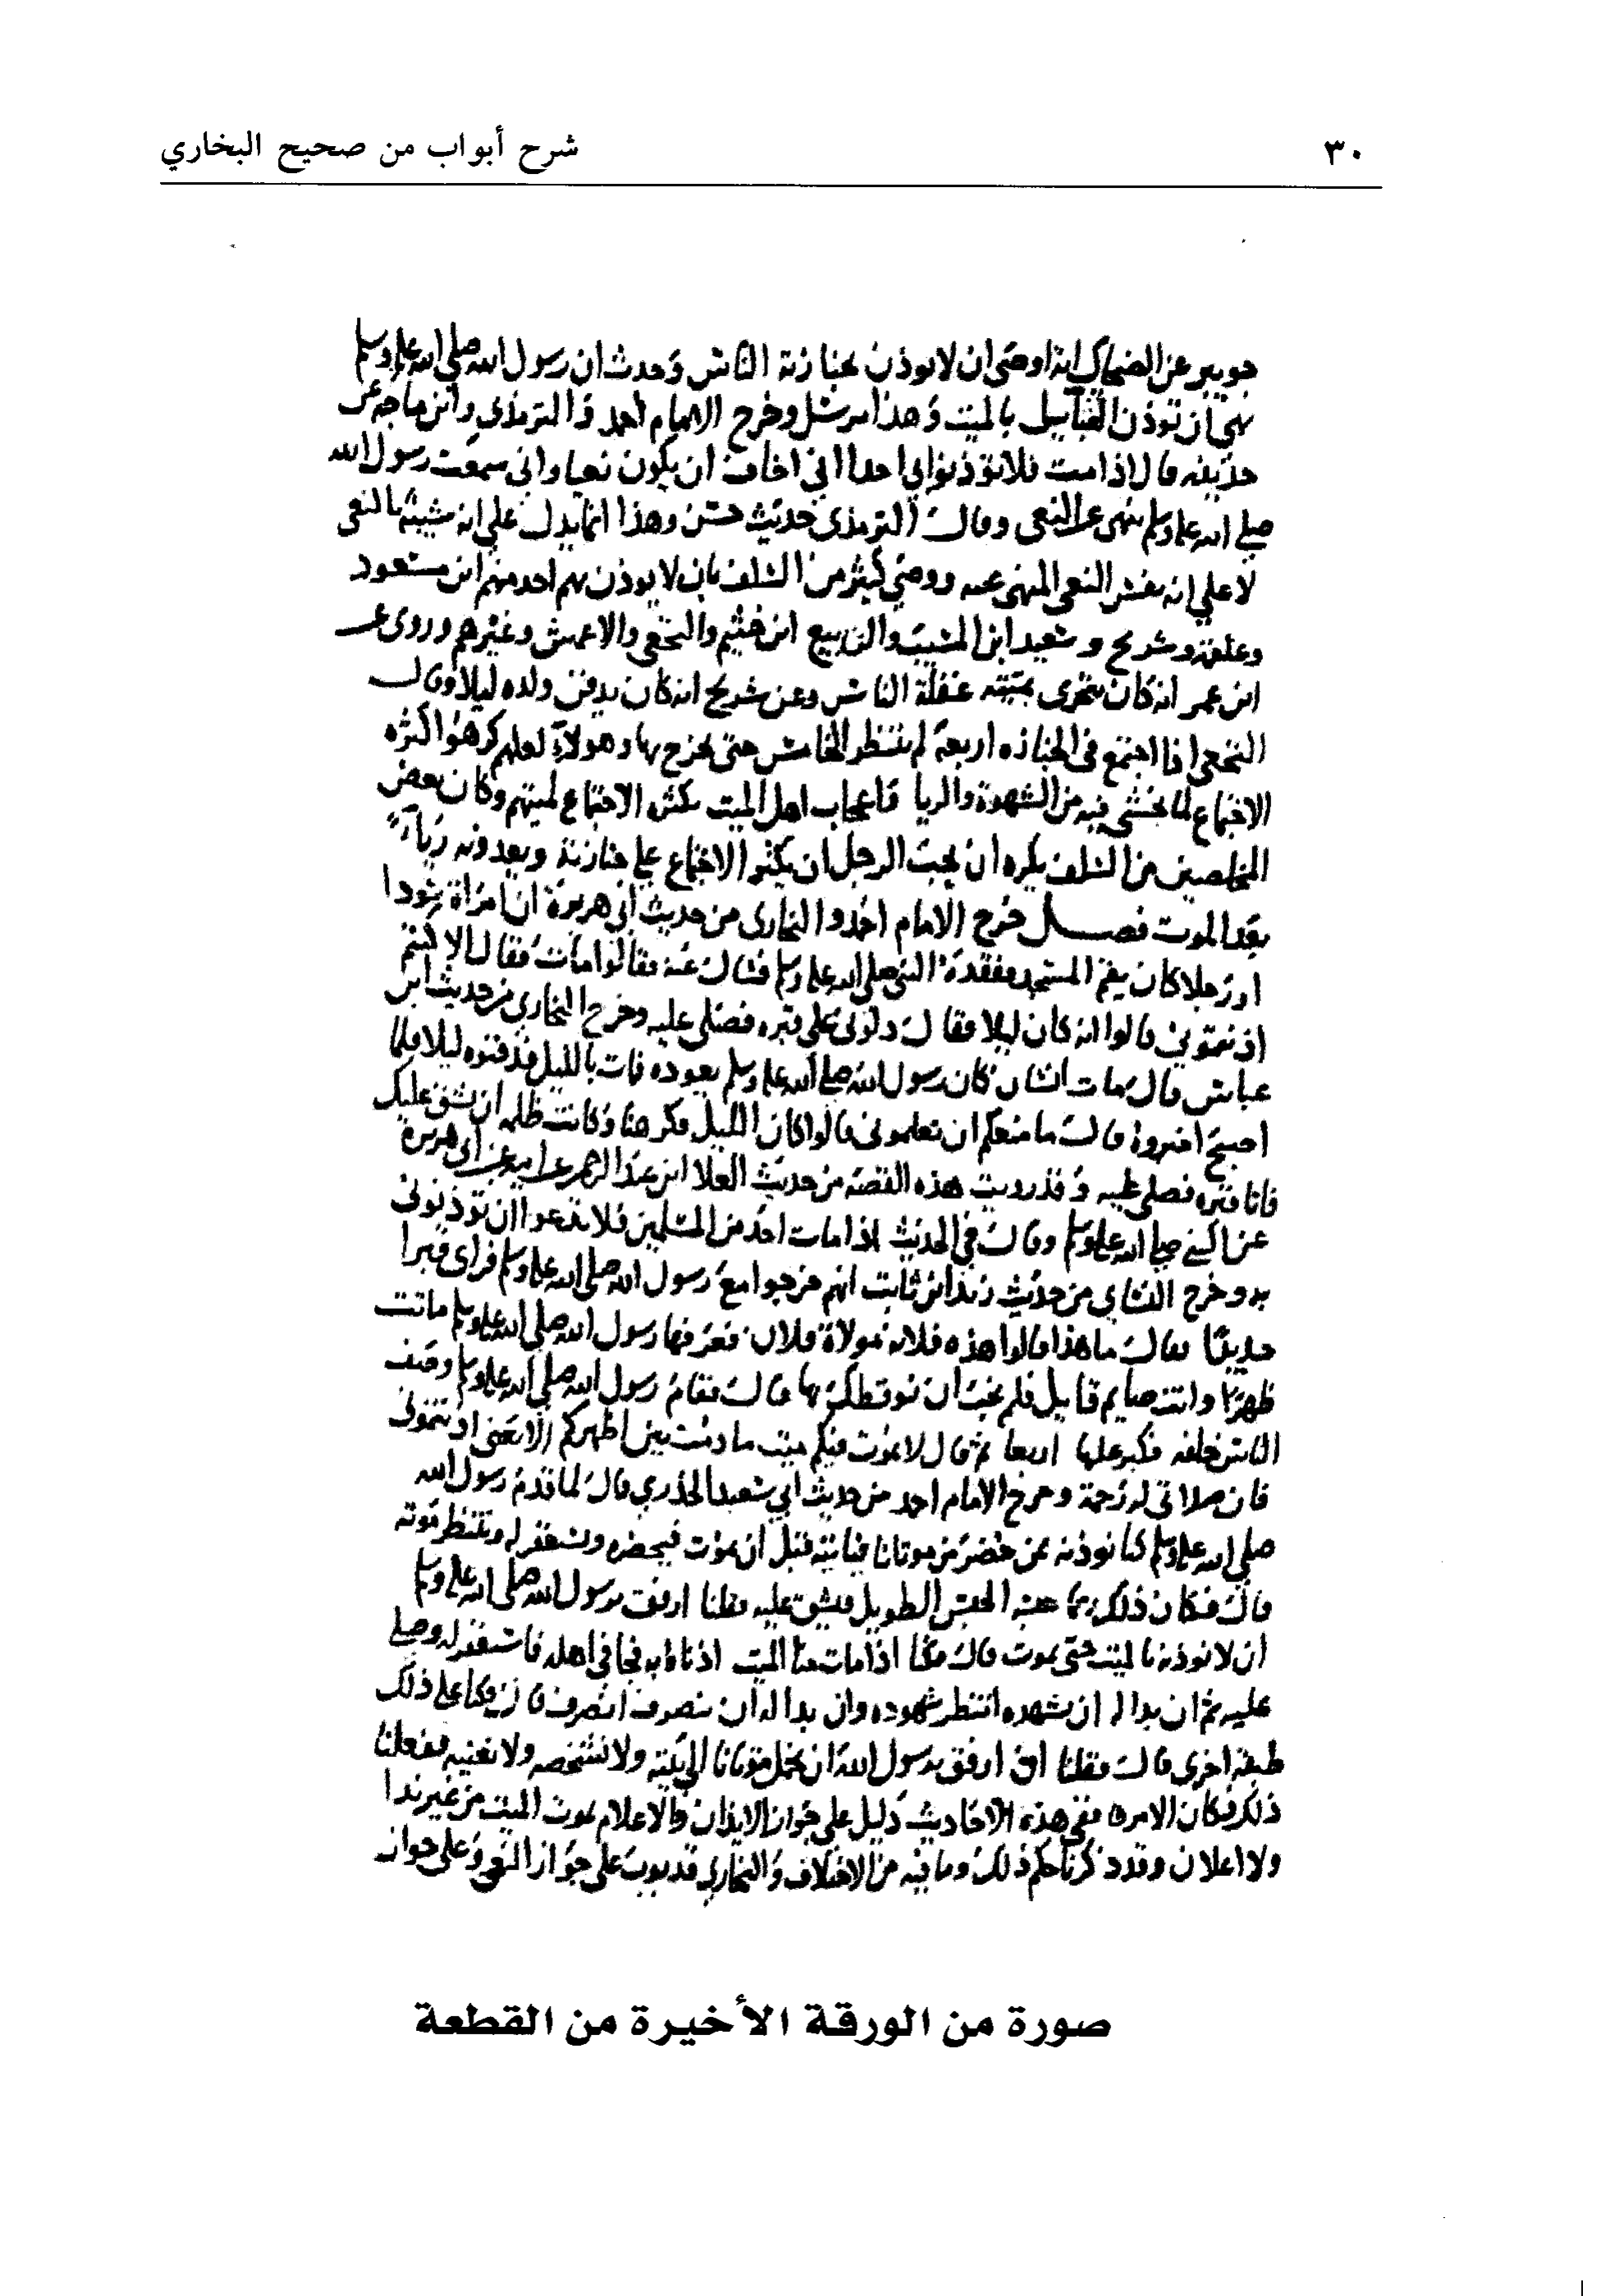 ٣٠
شرح أبواب من صحيح البخاري
جويبر عن الضحاك انه اوصى ان لا يوذن بجنازته الناس وحدث ان رسول الله صلى الله عليه وسلم
نهى ان توذن القبايل بالميت وهذا مرسل وخرج الامام احمد والترمذي وابن ماجه عن
حذيفه قال اذا مت فلا توذنوا بي احدا اني اخاف ان يكون نعيا واني سمعت رسول الله
صلى الله عليه وسلم ينهى عن النعي وقال الترمذي حديث حسن وهذا انما يدل على انه شبيه بالنعي
لا على انه نفس النعي المنهى عنه ووصى كثير من السلف بان لا يوذن بهم احد منهم ابن مسعود
وعلقمه وشريح وسعيد ابن المسيب والربيع ابن خثيم والنخعي والاعمش وغيرهم وروى عن
ابن عمر انه كان يتحرى بميته غفلة الناس وعن شريح انه كان يدفن ولده ليلا وقال
النخعي اذا اجتمع في الجنازه اربعة لم ينتظر الخامس حتى يخرج بها وهولاء لعلهم كرهوا كثره
الاجتماع لما يخشى فيه من الشهوة والريا واعجاب اهل الميت بكثره الاجتماع لميتهم وكان بعض
المخلصين من السلف يكره ان يحب الرجل ان يكثر الاجتماع على جنازته ويعدونه رياء
بعد الموت فصل خرج الامام احمد والبخاري من حديث ابي هريرة ان امراة سودا
او رجلا كان يقم المسجد ففقده النبي صلى الله عليه وسلم فسال عنه فقالوا مات فقال الا كنتم
اذنتموني قالوا انه كان ليلا فقال دلوني على قبره فصلى عليه وخرج البخاري من حديث ابن
عباس قال مات انسان كان رسول الله صلى الله عليه وسلم يعوده فمات بالليل فدفنوه ليلا فلما
اصبح اخبروه قال ما منعكم ان تعلموني قالوا كان الليل فكرهنا وكانت ظلمه ان نشق عليك
فاتا قبره فصلى عليه وقد رويت هذه القصه من حديث العلا ابن عبد الرحمن عن ابيه عن ابي هريرة
عن النبي صلى الله عليه وسلم وقال في الحديث اذا مات احد من المسلمين فلا تدعوا ان توذنوني
به وخرج النساي من حديث زيد ابن ثابت انهم خرجوا مع رسول الله صلى الله عليه وسلم فراى قبرا
حديثا فقال ما هذا قالوا هذه فلانه مولاة فلان فعرفها رسول الله صلى الله عليه وسلم ماتت
ظهرا وانت صايم قايل فلم نحب ان نوقظك بها قال فقام رسول الله صلى الله عليه وسلم وصف
الناس خلفه فكبر عليها اربعا ثم قال لا يموت فيكم ميت ما دمت بين اظهركم الا يعني اذنتموني
فان صلاتي له رحمة وخرج الامام احمد من حديث ابي سعيد الخدري قال لما قدم رسول الله
صلى الله عليه وسلم كنا نوذنه بمن حضر من موتانا فياتيه قبل ان يموت فيحضره ويستغفر له وينتظر موته
قال فكان ذلك ربما حبسه الحبس الطويل فشق عليه فقلنا ارفق برسول الله صلى الله عليه وسلم
ان لا نوذنه بالميت حتى يموت قال فكنا اذا مات منا الميت اذناه به فجا في اهله فاستغفر له وصلى
عليه ثم ان بدا له ان يشهده انتظر شهوده وان بدا له ان ينصرف انصرف قال فكنا على ذلك
طبقه اخرى قال فقلنا ارفق برسول الله ان نحمل موتانا الى بيته ولا نشخصه ولا نعنيه ففعلنا
ذلك فكان الامر ففي هذه الاحاديث دليل على جواز الايذان والاعلام بموت الميت من غير ندا
ولا اعلان وقد ذكرنا حكم ذلك وما فيه من الاختلاف والبخاري قد بوب على جواز النعي وعلى جواز
صورة من الورقة الأخيرة من القطعة